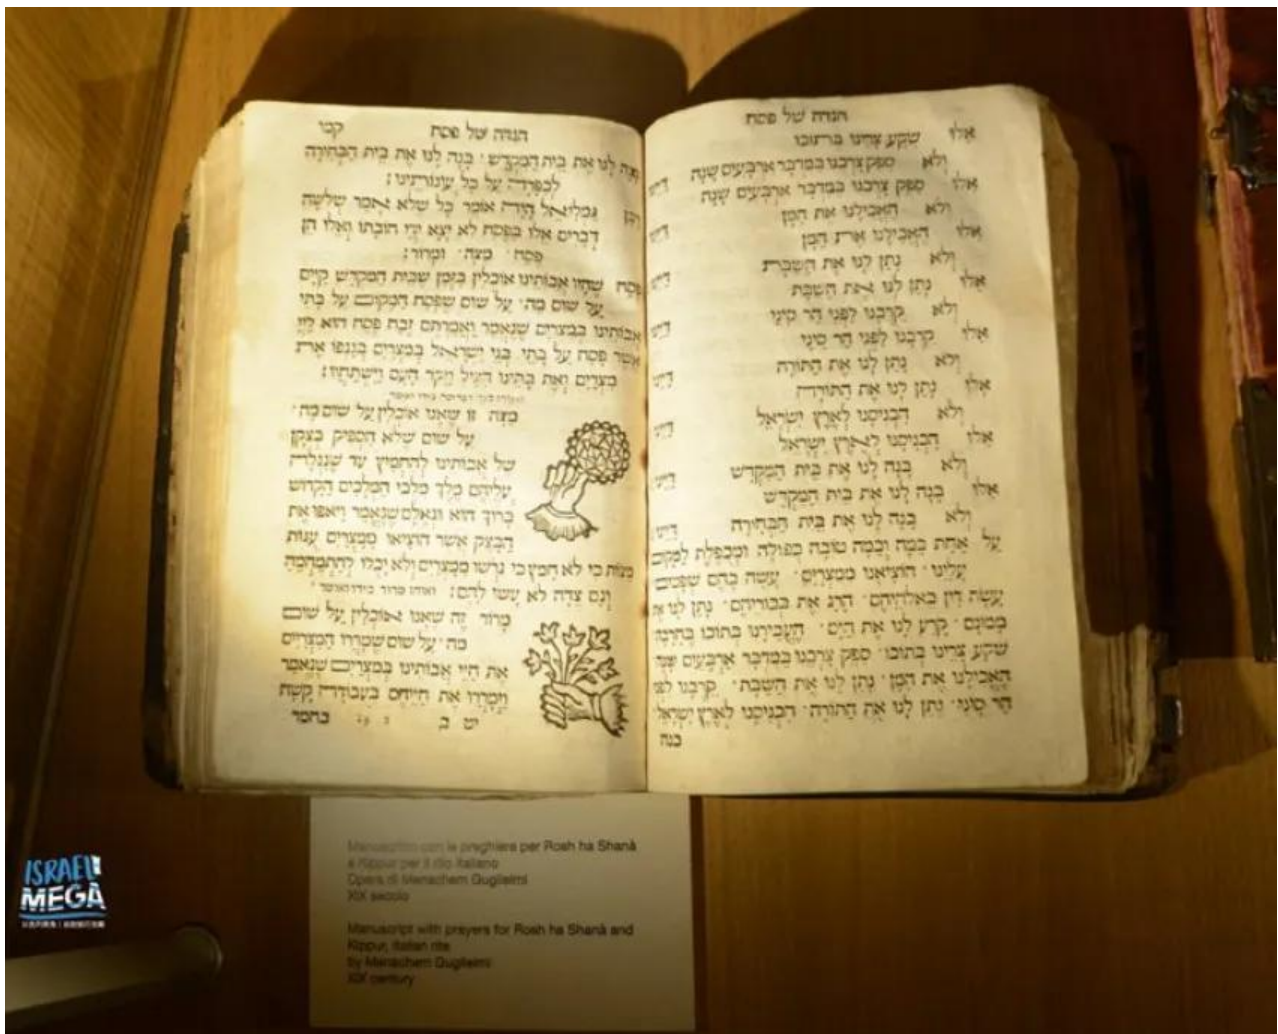 הגדה של פסח
אלו שקע צרינו בתוכו
ולא ספק צרכנו במדבר ארבעים שנה דיינו
אלו ספק צרכנו במדבר ארבעים שנה
ולא האכילנו את המן דיינו
אלו האכילנו את המן
ולא נתן לנו את השבת דיינו
אלו נתן לנו את השבת
ולא קרבנו לפני הר סיני דיינו
אלו קרבנו לפני הר סיני
ולא נתן לנו את התורה דיינו
אלו נתן לנו את התורה
ולא הכניסנו לארץ ישראל דיינו
אלו הכניסנו לארץ ישראל
ולא בנה לנו את בית המקדש דיינו
אלו בנה לנו את בית המקדש
ולא בנה לנו את בית הבחירה דיינו
על אחת כמה וכמה טובה כפולה ומכופלת למקום
עלינו · הוציאנו ממצרים · עשה בהם שפטים
עשה דין באלהיהם · הרג את בכוריהם · נתן לנו את
ממונם · קרע לנו את הים · העבירנו בתוכו בחרבה
שקע צרינו בתוכו · ספק צרכנו במדבר ארבעים שנה
האכילנו את המן · נתן לנו את השבת · קרבנו לפני
הר סיני · נתן לנו את התורה · הכניסנו לארץ ישראל
בנה
הגדה של פסח קכו
בנה לנו את בית המקדש · בנה לנו את בית הבחירה
לכפרה על כל עונותינו:
רבן גמליאל היה אומר כל שלא אמר שלשה
דברים אלו בפסח לא יצא ידי חובתו ואלו הן
פסח · מצה · ומרור:
פסח שהיו אבותינו אוכלין בזמן שבית המקדש קיים
על שום מה · על שום שפסח המקום על בתי
אבותינו במצרים שנאמר ואמרתם זבח פסח הוא ליי
אשר פסח על בתי בני ישראל במצרים בנגפו את
מצרים ואת בתינו הציל ויקד העם וישתחוו:
מצה זו שאנו אוכלין על שום מה ·
על שום שלא הספיק בצקן
של אבותינו להחמיץ עד שנגלה
עליהם מלך מלכי המלכים הקדוש
ברוך הוא וגאלם שנאמר ויאפו את
הבצק אשר הוציאו ממצרים עגות
מצות כי לא חמץ כי גרשו ממצרים ולא יכלו להתמהמה
וגם צדה לא עשו להם:
מרור זה שאנו אוכלין על שום
מה · על שום שמררו המצריים
את חיי אבותינו במצרים שנאמר
וימררו את חייהם בעבודה קשה
יש ב בחמר
Manoscritto con le preghiere per Rosh ha Shanà
e Kippur per il rito italiano
Opera di Menachem Guglielmi
XIX secolo
Manuscript with prayers for Rosh ha Shanà and
Kippur, Italian rite
by Menachem Guglielmi
XIX century
ISRAEL
MEGA